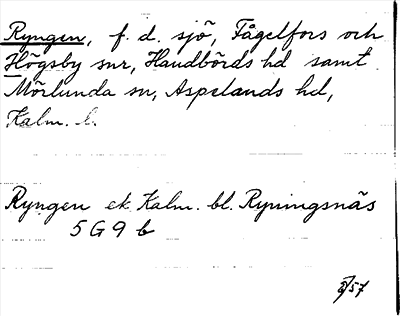 Ryngen, f. d. sjö, Fågelfors och
Högsby snr, Handbörds hd samt
Mörlunda sn, Aspelands hd,
Kalm. l.
Ryngen ek. Kalm. bl. Ryningsnäs
5 G 9 b
/57